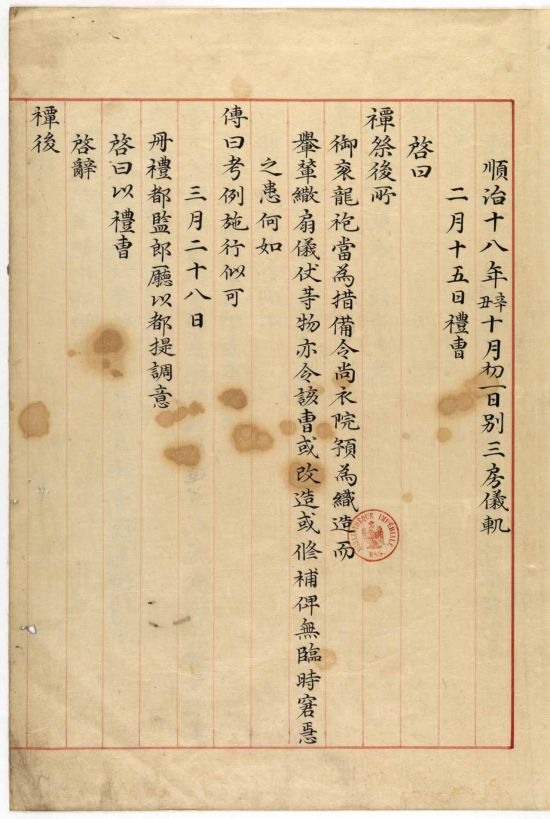 順治十八年辛丑十月初一日別三房儀軌
二月十五日禮曺
啓曰
禫祭後所
御衮龍袍當為措備令尚衣院預為織造而
轝輦繖扇儀仗䓁物亦令該曺或改造或修補俾無臨時窘急
之患何如
傳曰考例施行似可
三月二十八日
冊禮都監郎廳以都提調意
啓曰以禮曺
啓辭
禫後
BIBLIOTHÈQUE IMPÉRIALE MSS.